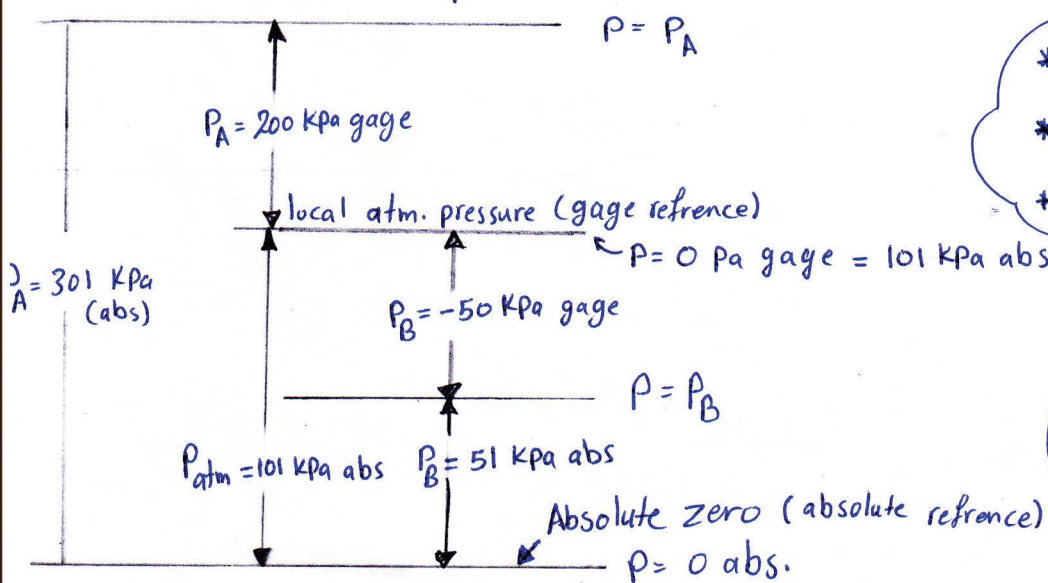 P = P_A
P_A = 200 kpa gage
local atm. pressure (gage refrence)
P = 0 Pa gage = 101 kPa abs
A = 301 KPa
(abs)
P_B = -50 KPa gage
P = P_B
P_atm = 101 kPa abs P_B = 51 kpa abs
Absolute zero (absolute refrence)
P = 0 abs.
*
*
*